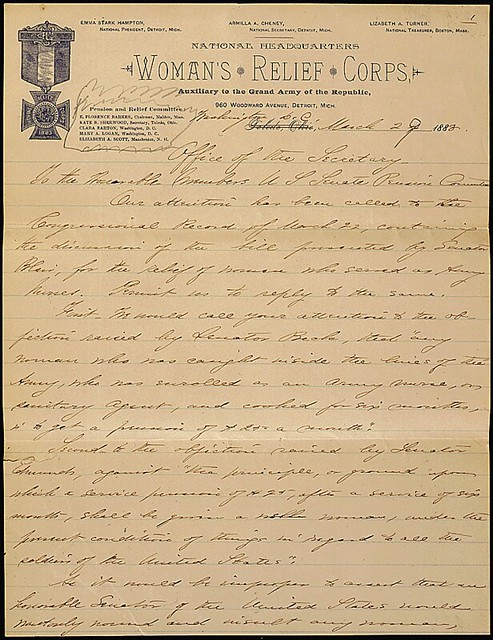 1
EMMA STARK HAMPTON,
NATIONAL PRESIDENT, DETROIT, MICH.
ARMILLA A. CHENEY,
NATIONAL SECRETARY, DETROIT, MICH.
LIZABETH A. TURNER,
NATIONAL TREASURER, BOSTON, MASS.
NATIONAL HEADQUARTERS
WOMAN'S RELIEF CORPS,
Auxiliary to the Grand Army of the Republic,
960 WOODWARD AVENUE, DETROIT, MICH.
Pension and Relief Committee:
E. FLORENCE BARKER, Chairman, Malden, Mass.
KATE B. SHERWOOD, Secretary, Toledo, Ohio.
CLARA BARTON, Washington, D. C.
MARY A. LOGAN, Washington, D. C.
ELIZABETH A. SCOTT, Manchester, N. H.
1883
Washington D.C.
Toledo, Ohio, March 29 1888
Office of the Secretary
To the Honorable Members U S Senate Pension Committee
Our attention has been called to the
Congressional Record of March 22, containing
the discussion of the bill presented by Senator
Blair, for the relief of women who served as Army
Nurses. Permit us to reply to the same.
First. We would call your attention to the ob-
jection raised by Senator Beck, that "any
woman who was caught inside the lines of the
Army, who was enrolled as an Army nurse, or
sanitary agent, and cooked for six months,
is to get a pension of $25 a month."
Second. to the objection raised by Senator
against "the principle, or ground upon
which a service pension of $25, after a service of six
months, shall be given a woman, under the
present condition of things in regard to all the
soldiers of the United States".
As it would be improper to assert that an
honorable Senator of the United States would
wound and insult any woman,